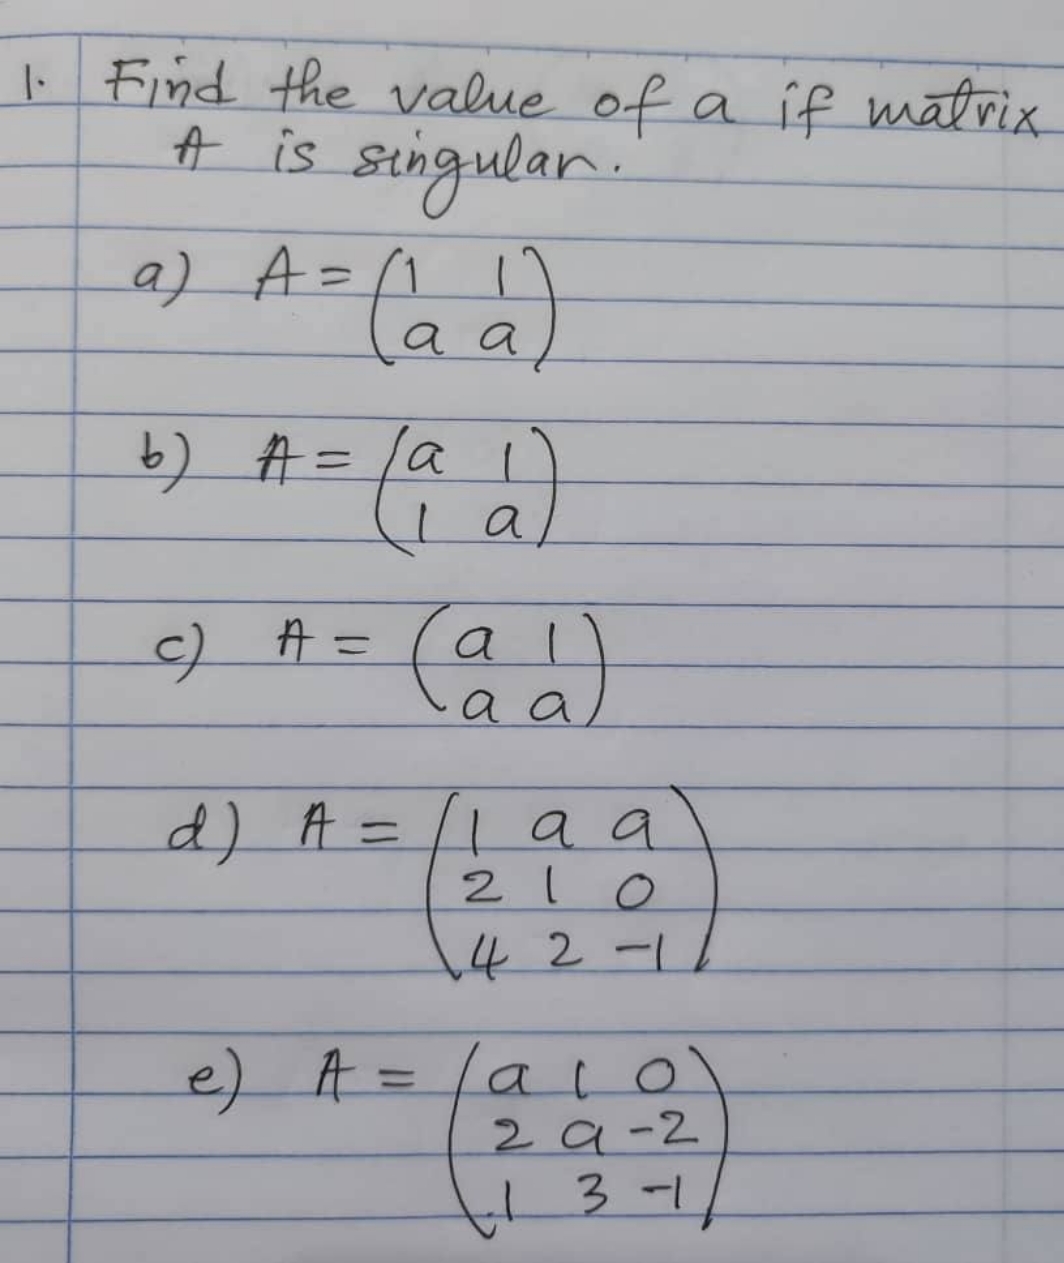 1. Find the value of a if matrix
A is singular.
a) A = (1 1
a a)
b) A = (a 1
1 a)
c) A = (a 1
a a)
d) A = (1 a a
2 1 0
4 2 -1)
e) A = (a 1 0
2 a -2
1 3 -1)